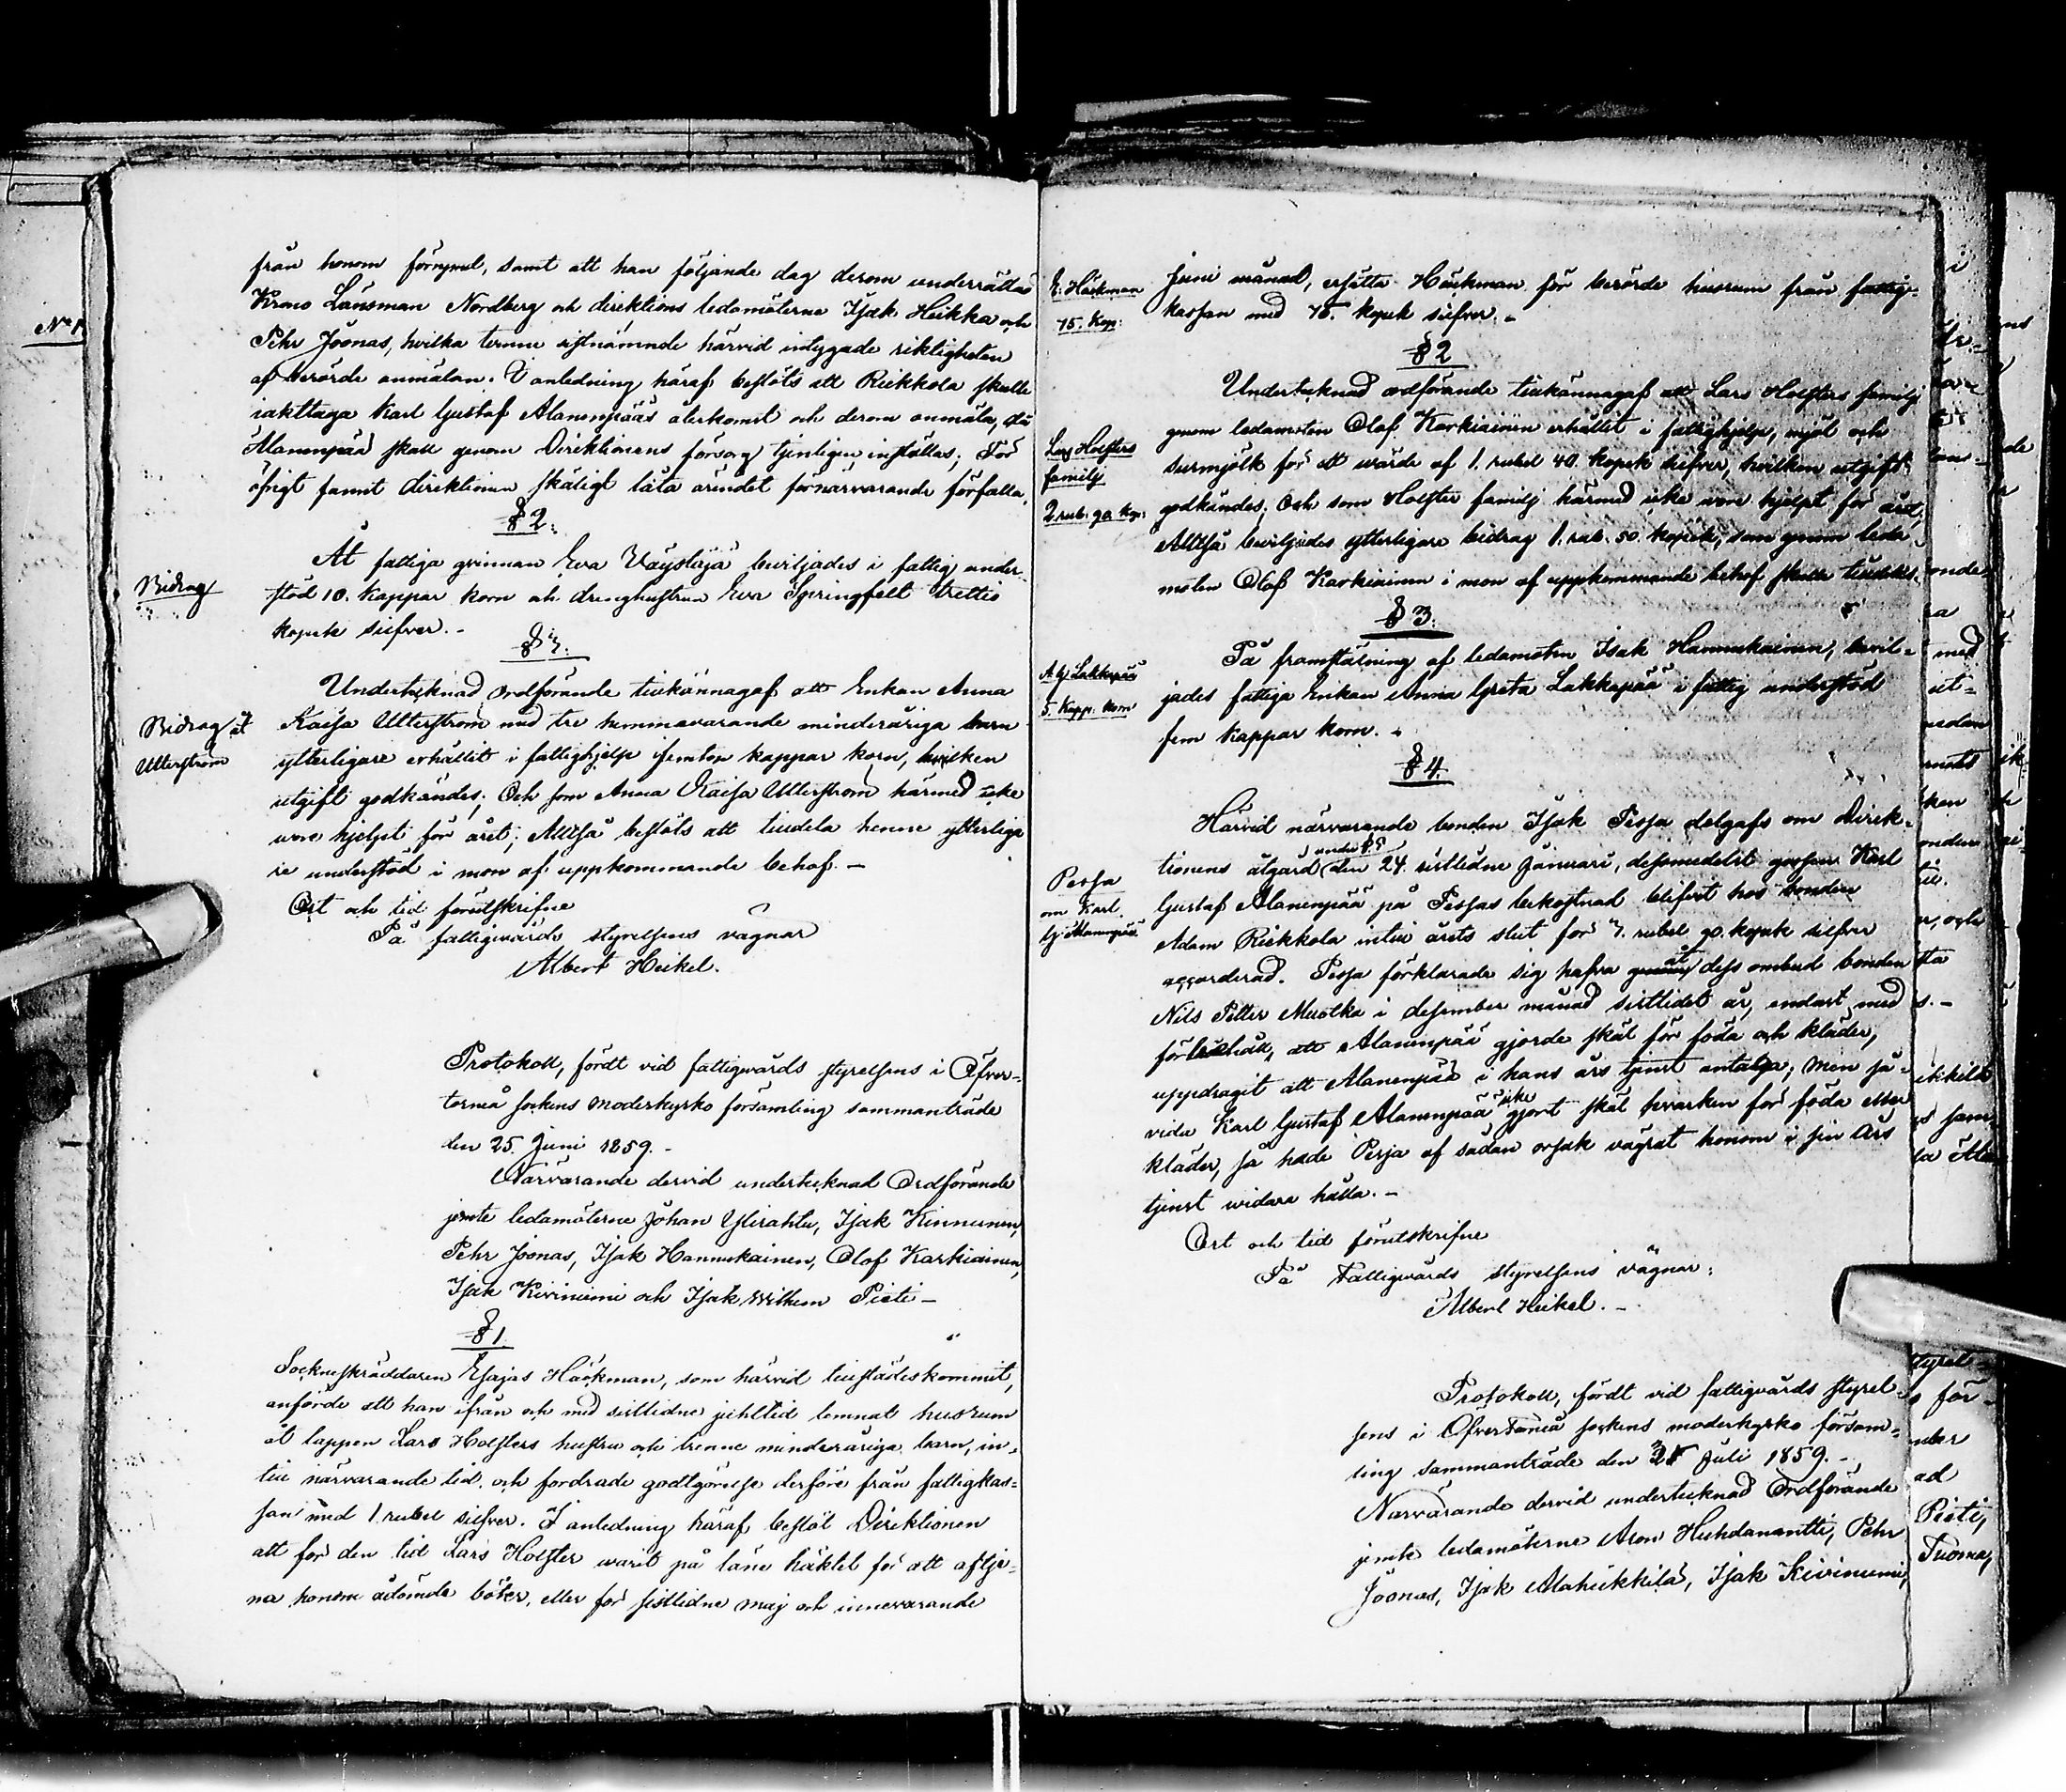 från honom förrymt, samt att han följande dag derom underrättat
Krono Länsman Nordberg och direktions ledamöterna Isak Heikka och
Pehr Joonas, hvilka tvenne sistnämnde härvid intygade riktigheten
af berörde anmälan. I anledning häraf beslöts att Riekkola skulle
iakttaga Karl Gustaf Alanenpääs återkomst och derom anmäla, då
Alanenpää skall genom Direktionens försorg tjenligen inställas; För
öfrigt fannt direktionen skäligt låta ärendet förnärvarande förfalla.
§ 2.
Bidrag
Åt fattiga qvinnan Eva Väystäjä beviljades i fattig under-
stöd 10. kappar korn och drenghustrun Eva Springfelt trettio
kopek silfver.-
§ 3.
Bidrag åt
Utterström
Undertecknad Ordförande tillkännagaf att Enkan Anna
Kaisa Utterström med tre hemmavarande minderåriga barn
ytterligare erhållit i fattighjelp femton kappar korn, hvilken
utgift godkändes; Och som Anna Kaisa Utterström härmed icke
vore hjelpt för året; Alltså beslöts att tilldela henne ytterliga
re understöd i mon af uppkommande behof.-
Ort och tid förutskrifne
På fattigvårds styrelsens vägnar
Albert Heikel.
Protokoll, fördt vid fattigvårds styrelsens i Öfver-
torneå sockens moderkyrko församling sammanträde
den 25. Juni 1859.-
Närvarande dervid undertecknad Ordförande
jemte ledamöterne Johan Ylirahtu, Isak Kinnunen,
Pehr Joonas, Isak Hannukainen, Olof Karkiainen,
Isak Kiviniemi och Isak Wilhem Pieti-
§ 1.
Sockneskräddaren Esajas Häckman, som härvid tillstädeskommit,
anförde att han ifrån och med sistlidne juhltid lemnat husrum
åt lappen Lars Holsters hustru och trenne minderåriga barn, in-
till närvarande tid, och fordrade godtgörelse derföre från fattigkas-
san med 1 rubel silfver. I anledning häraf beslöt Direktionen
att för den tid Lars Holster warit på läne häktet för att aftje-
na honom ådömde böter, eller för sistlidne maj och innevarande
E. Häckman
75. Kop:
Juni månad, ersätta Häckman för berörde husrum från fattig-
kassan med 75. kopek silfver.-
§ 2
Lars Holsters
familj
2 rub. 90 kop:
Undertecknad ordförande tillkännagaf att Lars Holsters familj
genom ledamoten Olof Karkiainen erhållit i fattighjelp, mjöl och
surmjölk för ett wärde af 1. rubel 40. kopek silfver, hvilken utgift
godkändes; Och som Holster familj härmed icke vore hjelpt för året,
Alltså beviljades ytterligare bidrag 1. rub. 50. kopek, som genom leda-
moten Olof Karkiainen i mon af uppkommande behof skulle tilldelas.
§ 3.
A G Lakkapää
5. Kapp: korn
På framställning af ledamoten Isak Hannukainen, bevil-
jades fattiga Enkan Anna Greta Lakkapää i fattig understöd
fem kappar korn.-
§ 4.
Pessa
om Karl
G. Alanenpää
Härvid närvarande bonden Isak Pessa delgafs om Direk-
tionens åtgärd under § 5 den 24. sistledne Januari, dessmedelst gossen Karl
Gustaf Alanenpää på Pessas bekostnad blifvit hos bonden
Adam Riekkola intill årets slut för 7. rubel 90. kopek silfver
accorderad. Pessa förklarade sig hafva åt dess ombud bonden
Nils Petter Muotka i desember månad sistlidet år, endast med
förbehåll, att Alanenpää gjorde skäl för föda och kläder,
uppdragit att Alanenpää i hans års tjenst antaga, men så-
vida Karl Gustaf Alanenpää icke gjort skäl hvarken för föda eller
kläder, så hade Pessa af sådan orsak vägrat honom i sin års
tjenst widare hålla.-
Ort och tid förutskrifne
På Fattigvårds styrelsens vägnar:
Albert Heikel.-
Protokoll, fördt vid fattigvårds styrel-
sens i Öfvertorneå sockens moderkyrko försam-
ling sammanträde den 31 Juli 1859.-
Narvärande dervid undertecknad Ordförande
jemte ledamöterne Aron Huhdanantti, Pehr
Joonas, Isak Alaheikkilä, Isak Kiviniemi,